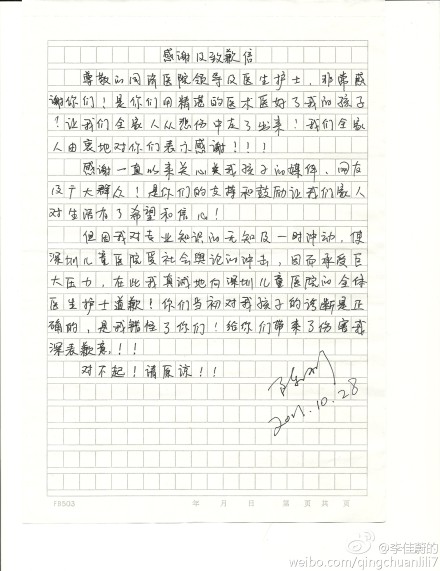 感谢及致歉信
尊敬的同济医院领导及医生护士，非常感
谢你们！是你们用精湛的医术医好了我的孩子
！让我们全家人从悲伤中走了出来！我们全家
人由衷地对你们表示感谢！！！
感谢一直以来关心关爱我孩子的媒体、网友
及广大群众！是你们的支持和鼓励让我们家人
对生活有了希望和信心！
但因我对专业知识的无知及一时冲动，使
深圳儿童医院受社会舆论的冲击，因而承受巨
大压力，在此我真诚地向深圳儿童医院的全体
医生护士道歉！你们当初对我孩子的诊断是正
确的，是我错怪了你们！给你们带来了伤害我
深表歉意！！！
对不起！请原谅！！
2011.10.28
FB503 年 月 日 第 页 共 页
@李佳蔚的
weibo.com/qingchuanlili7